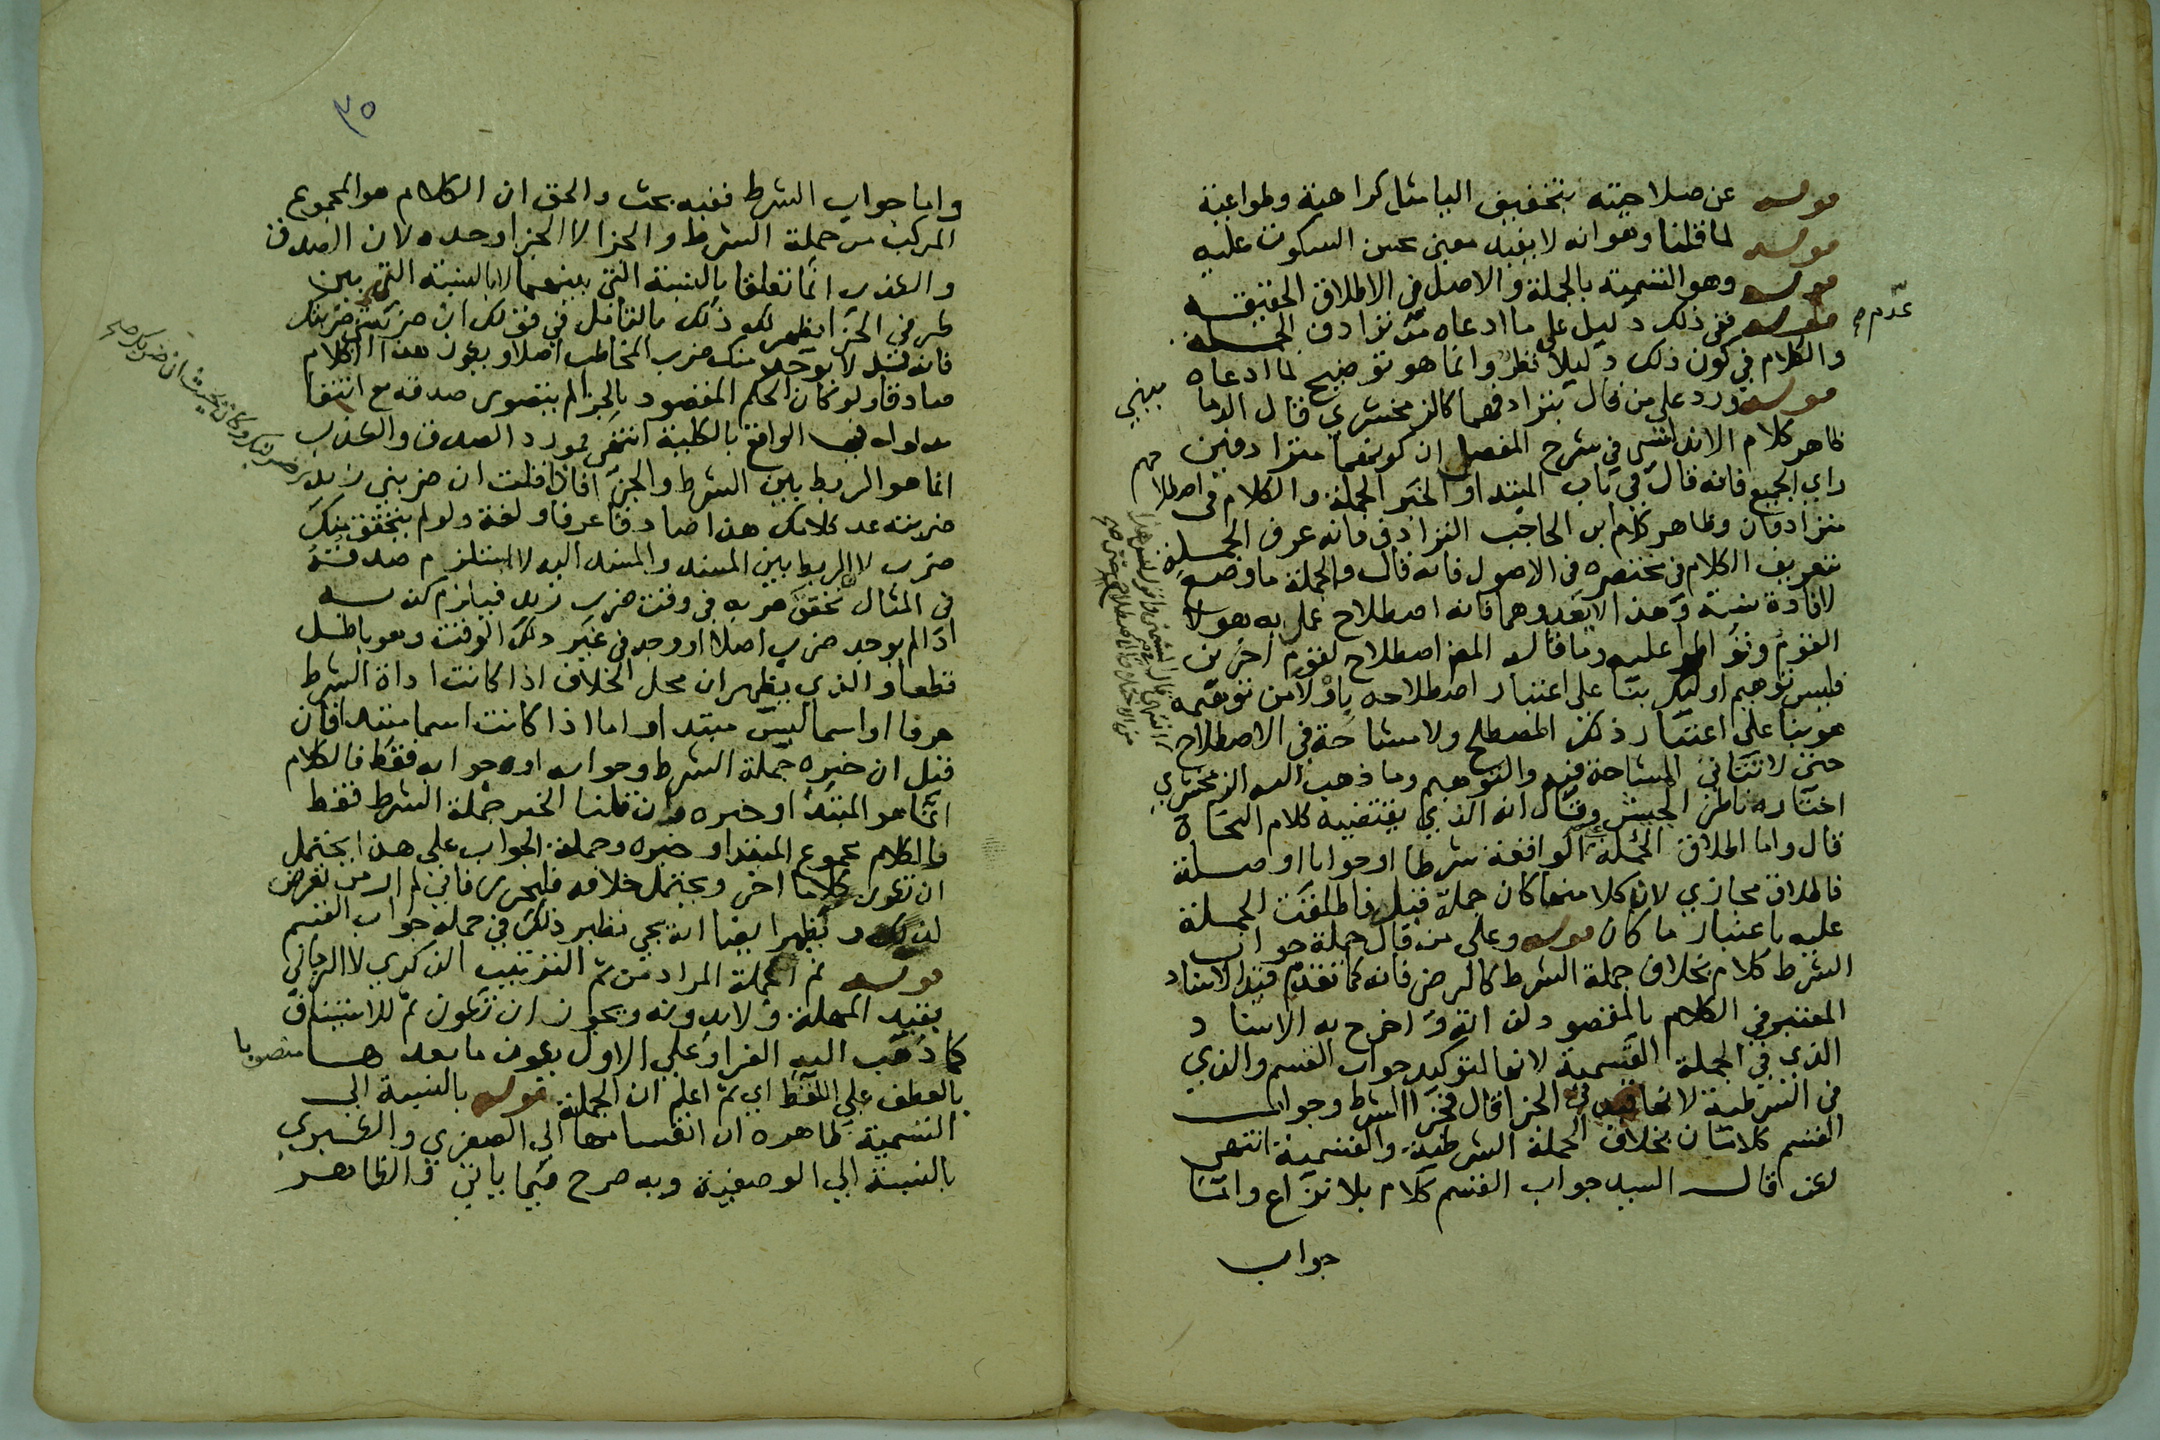 قوله عن صلاحيته بتخفيف اليا مثل كراهية وطواعية
قوله لما قلنا وهو انه لا يفيد معنى يحسن السكوت عليه
قوله وهو التسمية بالجملة والاصل في الاطلاق الحقيقه
قوله ففي ذلك دليل على ما ادعاه من ترادف الجملة
عدم صح
والكلام في كون ذلك دليلا نظر وانما هو توضيح لما ادعاه
قوله ورد على من قال بترادفهما كالزمخشري قال الدما
ميني
ظاهر كلام الاندلسي في شرح المفصل ان كونهما مترادفين
راي الجميع فانه قال في باب المبتدا والخبر الجملة والكلام في اصطلا
حهم
مترادفان وظاهر كلام ابن الحاجب الترادف فانه عرف الجملة
بتعريف الكلام في مختصره في الاصول فانه قال والجملة ما وضع
لافادة نسبة وهذا لا يعد وهما فانه اصطلاح عمل به هولا
القوم وتواطوا عليه وما قاله المص اصطلاح لقوم اخرين
فليس توهيم اوليك بنا على اعتبار اصطلاحه باولا من توهيمه
هو بنا على اعتبار ذلك المصطلح ولا مشاحة في الاصطلاح
حتى لا تتاتى المشاحة فيه والتوهيم وما ذهب اليه الزمخشري
اختاره ناظر الجيش وقال انه الذي يقتضيه كلام النحاة
قال واما اطلاق الجملة الواقعة شرطا او جوابا او صلة
فاطلاق مجازي لان كلا منها كان جملة قبل فاطلقت الجملة
عليه باعتبار ما كان قوله وعلى من قال جملة جواب
الشرط كلام بخلاف جملة الشرط كالرضي فانه كما تقدم قيد الاسناد
المعتبر في الكلام بالمقصود لذاته واخرج به الاسناد
الذي في الجملة القسمية لانها لتوكيد جواب القسم والذي
في الشرطية لانها قيد في الجزا قال فجزا الشرط وجواب
القسم كلامان بخلاف الجملة الشرطية والقسمية انتهى
لكن قال السيد جواب القسم كلام بلا نزاع واما
جواب
٣٥
واما جواب الشرط ففيه بحث والحق ان الكلام هو المجموع
المركب من جملة الشرط والجزا لا الجزا وحده لان الصدق
والكذب انما تعلقا بالنسبة التي بينهما لا بالنسبة التي بين
طرفي الجزا يظهر لك ذلك بالتامل في قولك ان ضربتني ضربتك
فانه لا يوجد منك ضرب المخاطب اصلا ويكون هذا الكلام
صادقا ولو كان الحكم المقصود بالجزا لم يتصور صدقه مع انتفا
الواقع بالكلية انتهى فمورد الصدق والكذب
انما هو الربط بين الشرط والجزا فاذا قلت ان ضربني زيد
ضربته عد كلامك هذا صادقا عرفا ولغة ولو لم يتحقق منك
ضرب لا الربط بين المسند والمسند اليه لاستلزم صدقه
في المثال تحقق ضربه في وقت ضرب زيد فيلزم كذبه
اذا لم يوجد ضرب اصلا او وجد في غير ذلك الوقت وهو باطل
قطعا والذي يظهر ان محل الخلاف اذا كانت اداة الشرط
حرفا او اسما ليس مبتدا واما اذا كانت اسما مبتدا فان
قيل ان خبره جملة الشرط وجوابه او جوابه فقط فالكلام
انما هو المبتدا وخبره وان قلنا الخبر جملة الشرط فقط
فالكلام مجموع المبتدا وخبره وجملة الجواب على هذا يحتمل
ان تكون كلاما اخر ويحتمل خلافه فليحرر فاني لم ار من تعرض
لذلك ويظهر ايضا انه يجي نظير ذلك في جملة جواب القسم
قوله ثم الجملة المراد من ثم الترتيب الذكري لا الزماني
بقيد المهلة ولا بدونه ويجوز ان تكون ثم للاستيناف
كما ذهب اليه الفرا وعلى الاول يكون ما بعدها منصوبا
بالعطف على اللفظ اي ثم اعلم ان الجملة قوله بالنسبة الى
التسمية ظاهره ان انقسامها الى الصغرى والكبرى
بالنسبة الى الوصفية وبه صرح فيما ياتي والظاهر